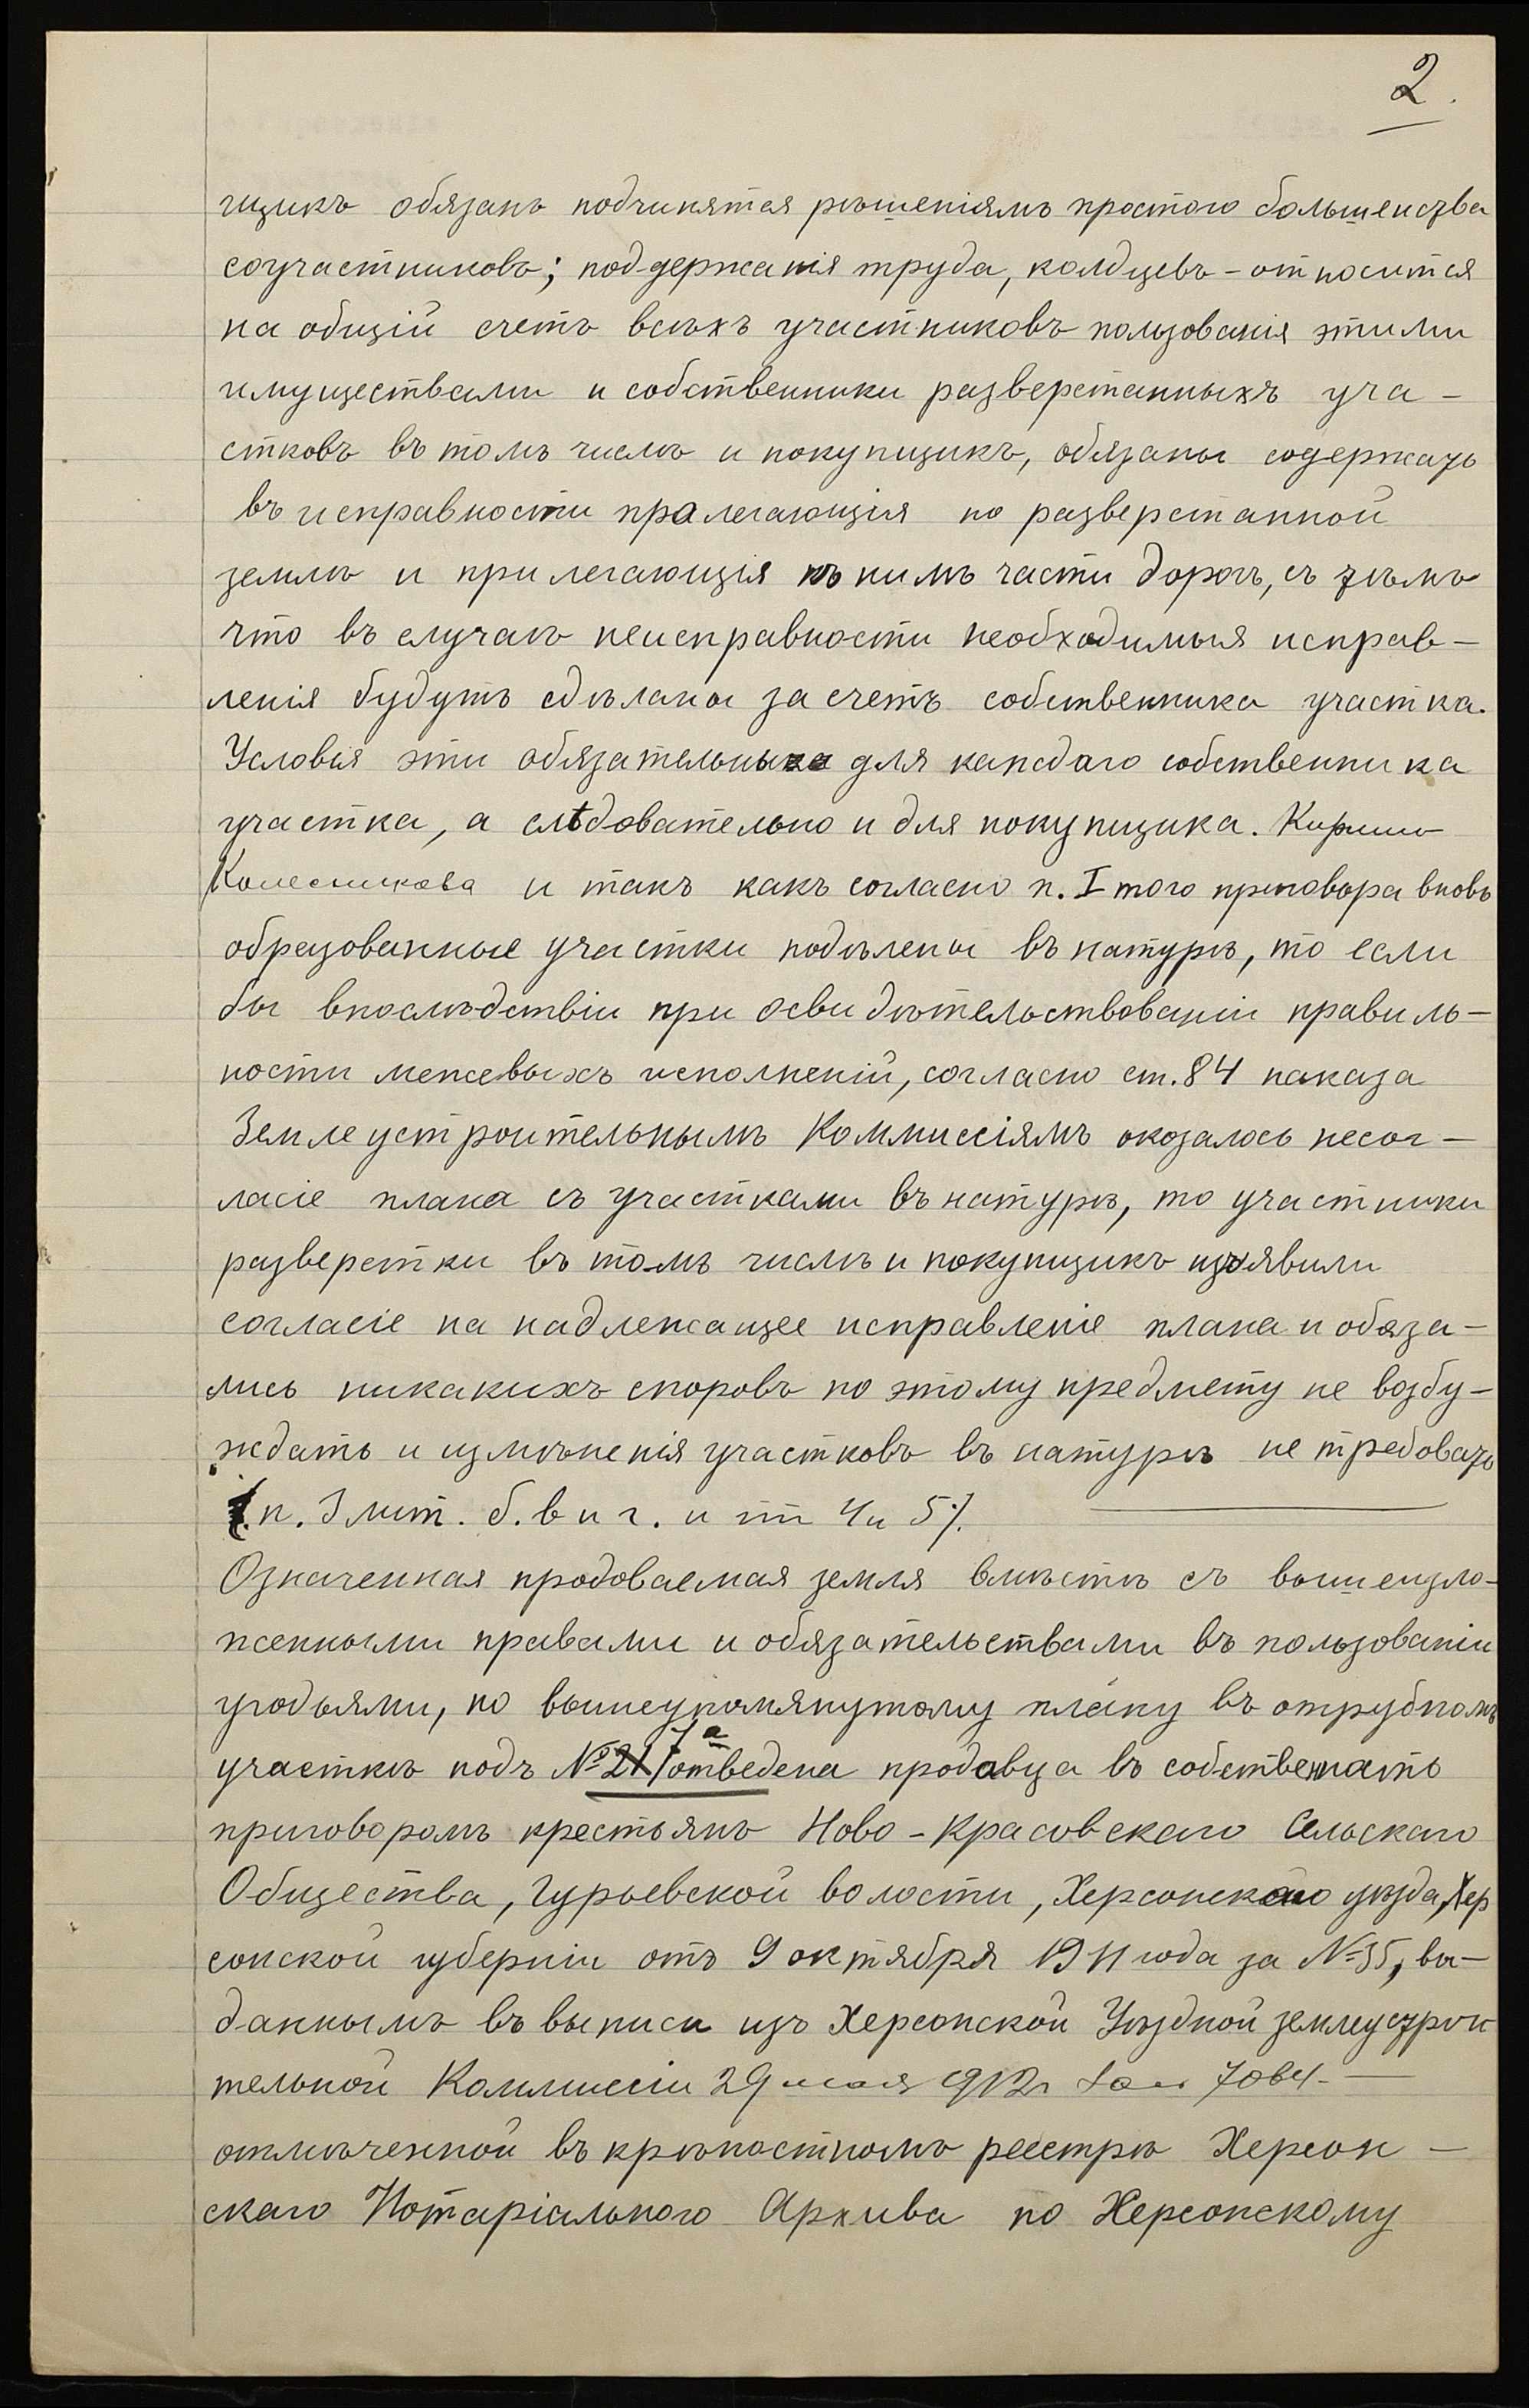 2.
щикъ обязанъ подчинятся рѣшеніямъ простого большенства
соучастниковъ; поддержанія труда, колдцевъ - относится
на общій счетъ всѣхъ участниковъ пользованія этими
имуществами и собственники разверстанныхъ уча-
стковъ въ томъ числѣ и покупщикъ, обязаны содержать
въ исправности пралегающія по разверстанной
землѣ и прилегающія къ нимъ части дорогъ, съ тѣмъ
что въ случаѣ неисправности необходимыя исправ-
ленія будутъ сдѣланы за счетъ собственника участка.
Условія эти обязательны для каждаго собственника
участка, а слѣдовательно и для покупщика.
Колесникова и такъ какъ согласно п. I того приговора вновь
образованные участки подѣлены въ натурѣ, то если
бы впослѣдствіи при освидѣтельствованіи правиль-
ности межевыхъ исполненій, согласно ст. 84 наказа
Землеустроительнымъ Коммиссіямъ оказалось несог-
ласіе плана съ участками въ натурѣ, то участники
разверстки въ томъ числѣ и покупщикъ изъявили
согласіе на надлежащее исправленіе плана и обяза-
лись никакихъ споровъ по этому предмету не возбу-
ждать и измѣненія участковъ въ натурѣ не требовать
/.п. 3 лит. б. в и г. и пп 4 и 5/.
Означенная продоваемая земля вмѣстѣ съ вышеизло-
женными правами и обязательствами въ пользованіи
угодьями, по вышеупомянутому плану въ отрубномъ
участкѣ подъ № отведена продавца въ собственность
приговоромъ крестьянъ Ново-Красовскаго Сельскаго
Общества, Гурьевской волости, Херсонскаго уѣзда, Хер
сонской губерніи отъ 9 октября 1911 года за №35, вы-
даннымъ въ выписи изъ Херсонской Уѣздной землеустрои
тельной Коммиссіи 29 мая 912г
отмѣченной въ крѣпостномъ реестрѣ Херсон-
скаго Нотаріальнаго Архива по Херсонскому